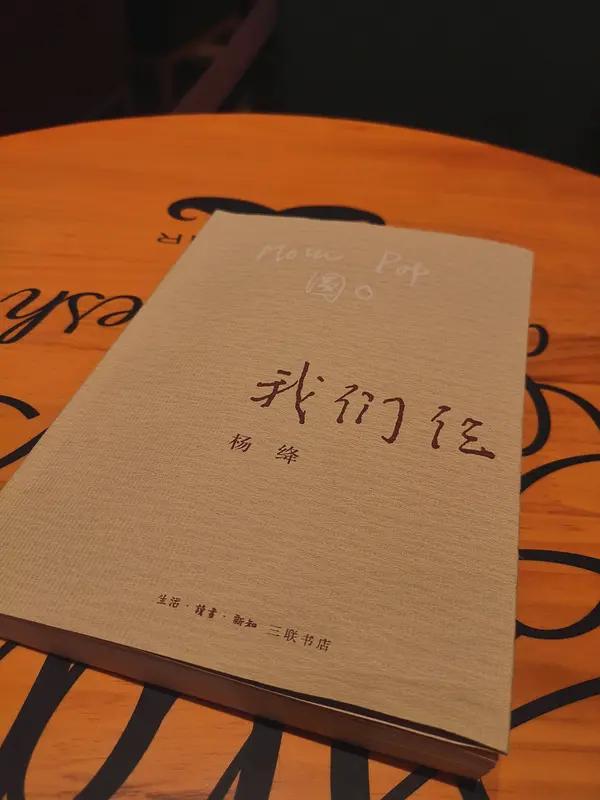 Mom Pop
圆O
我们仨
杨 绛
生活·讀書·新知 三联书店